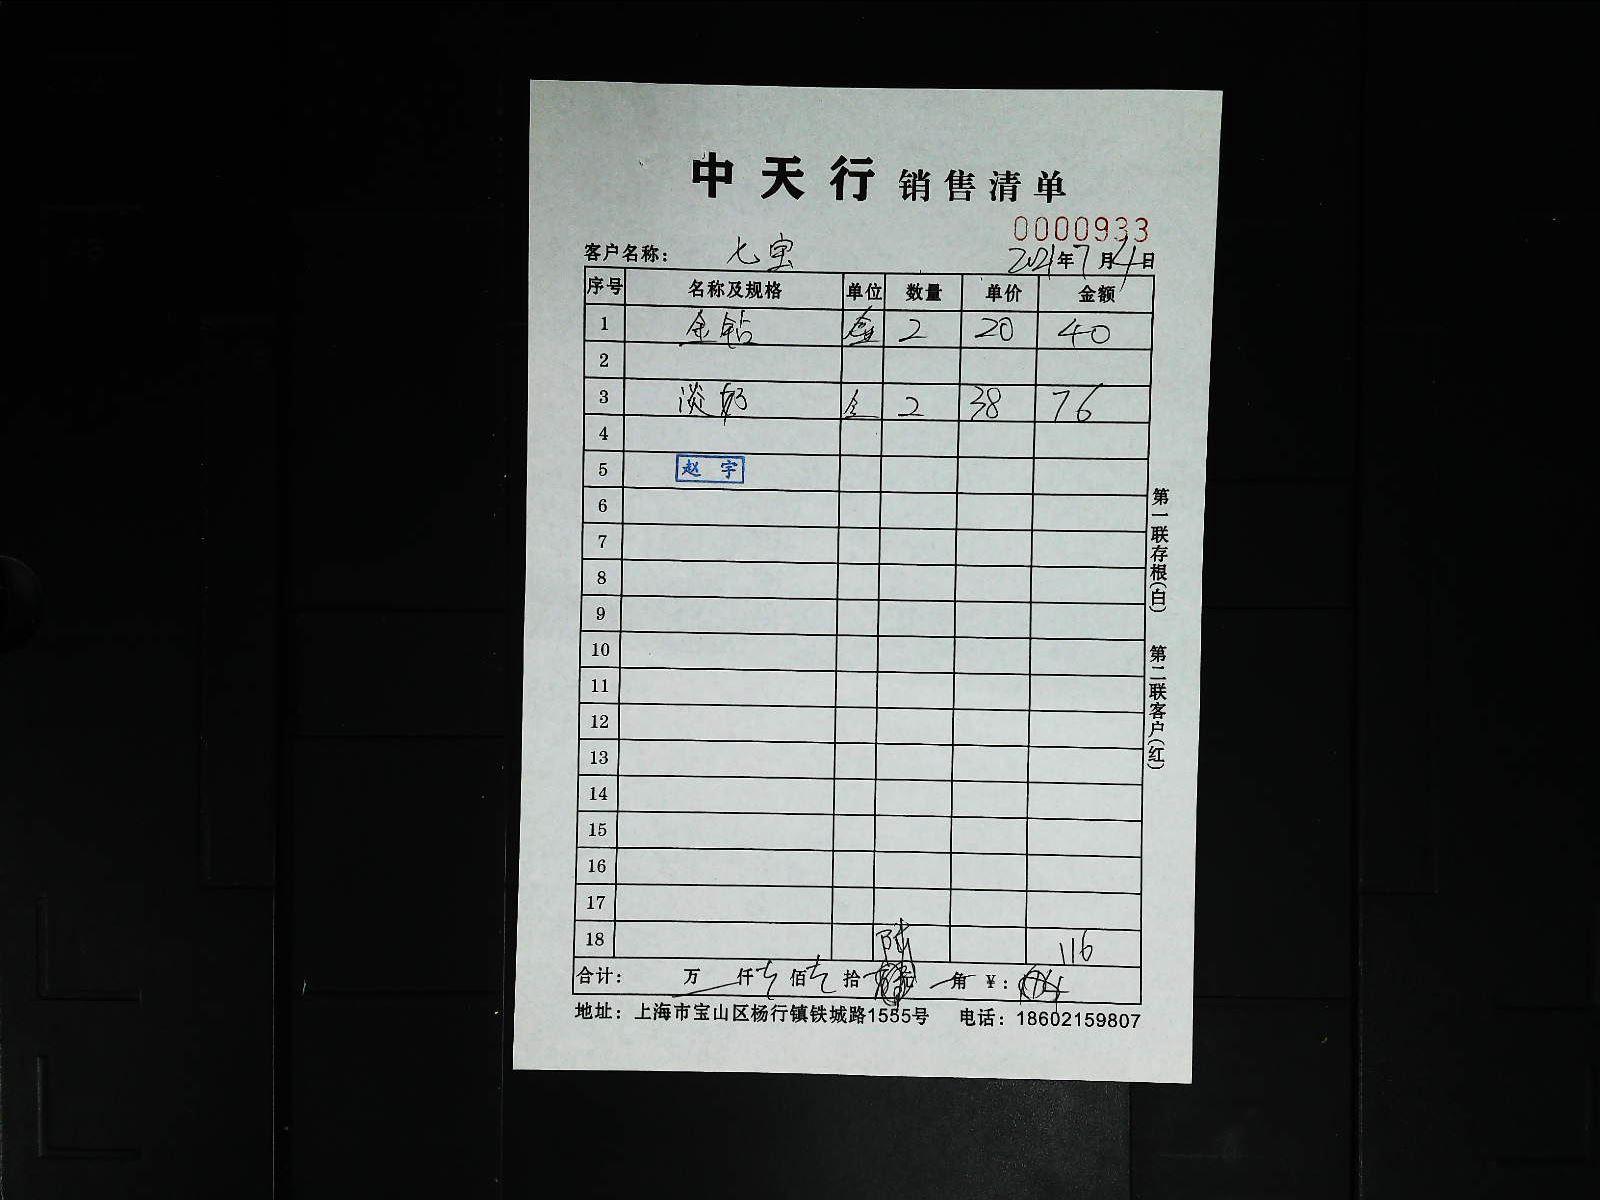 中天行 销售清单
0000933
客户名称： 七宝 2021年7月4日
序号 名称及规格 单位 数量 单价 金额
1 金钻 盒 2 20 40
2
3 淡奶 2 38 76
4
5 赵宇
6
7
8
9
10
11
12
13
14
15
16
17
18 陆 116
合计： 万 仟 七 佰 七 拾 元 角 ¥:
地址：上海市宝山区杨行镇铁城路1555号 电话：18602159807
第一联存根(白) 第二联客户(红)